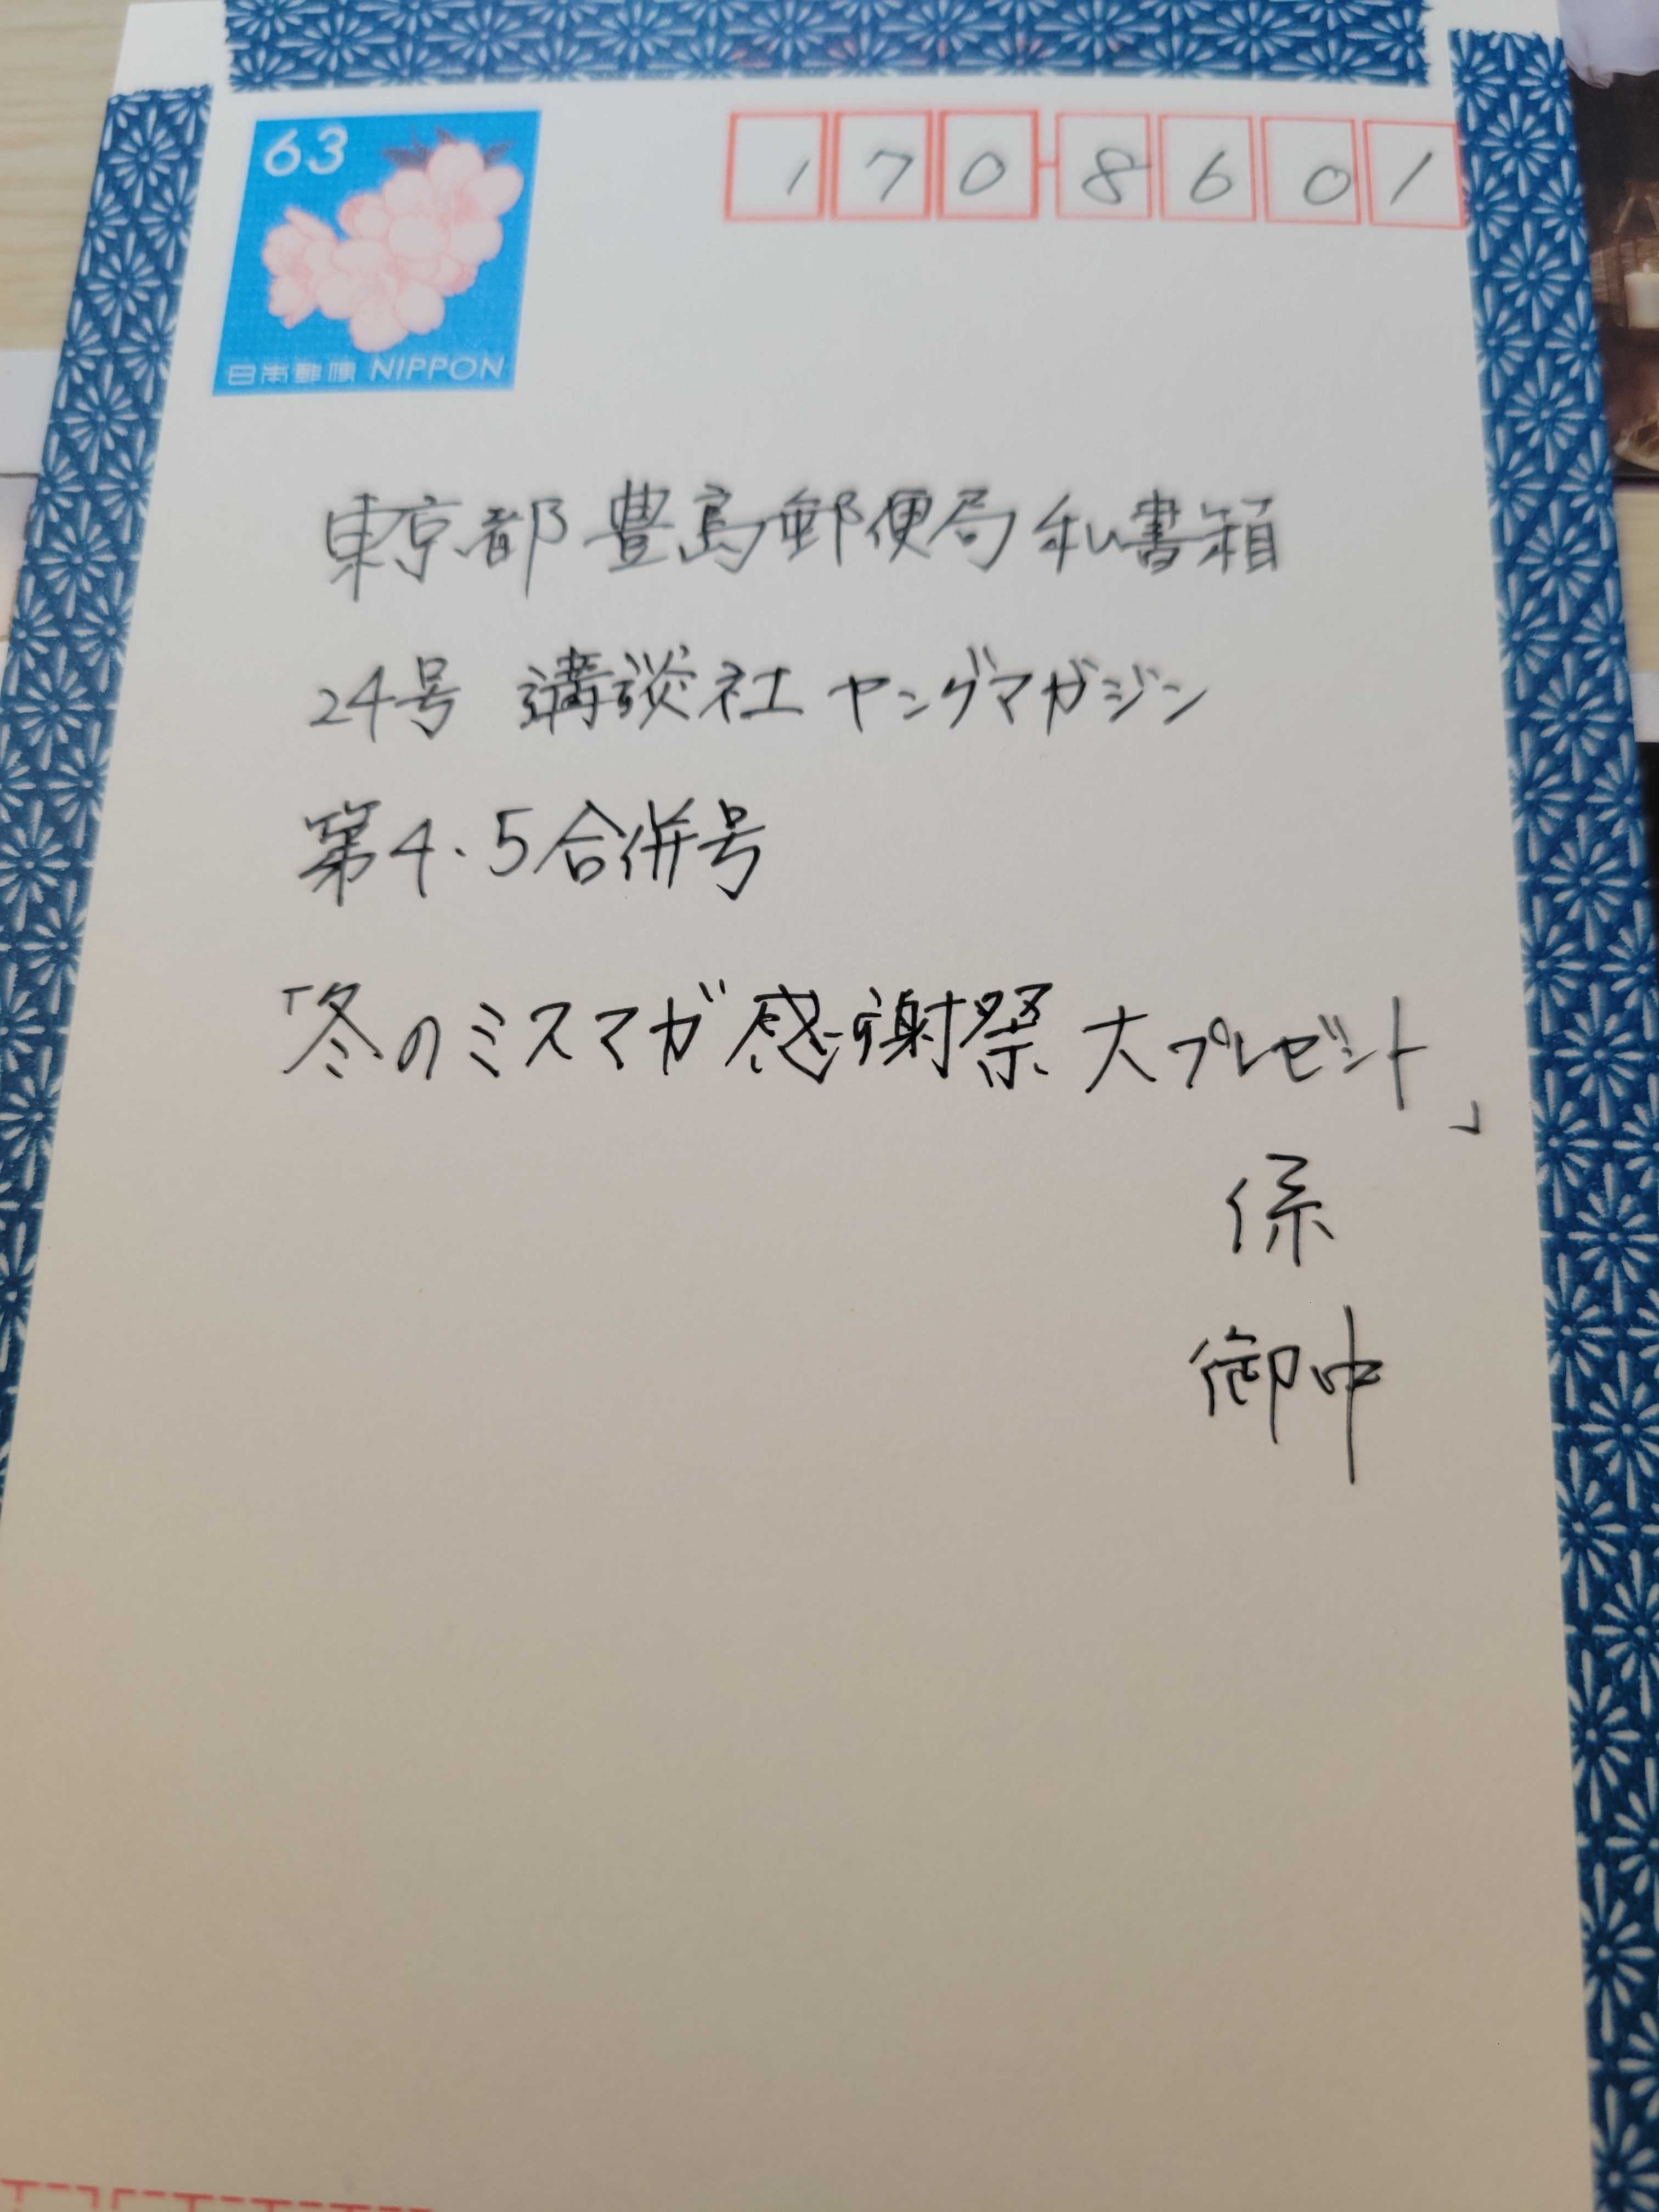 63
日本郵便 NIPPON
170-8601
東京都 豊島郵便局 私書箱
24号 講談社 ヤングマガジン
第4.5合併号
「冬のミスマガ感謝祭 大プレゼント」
係
御中